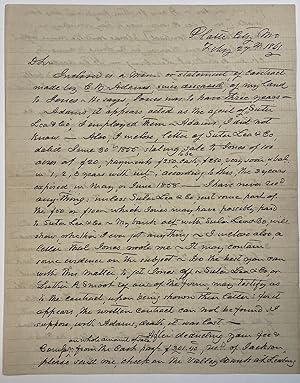 Platte City, Mo
Feby 27th 1861
Sir
Inclosed is a Mem. or statement of contract
made by C. B. Adams since deceased of my land
to Jones. He says, Jones was to have three years —
Adams it appears acted as the agent of Suter
Lea & Co, I employed them & Adams, I did not
know — Also, I inclose letter of Suter Lea & Co
dated June 30th 1855, stating sale to Jones of 100
acres at $20, payments $250 cash, $250
in 1, 2, & 3 years with int, according to this, the 3 years
expired in May or June 1858 — I have never rec'd
any thing, unless Suter Lea & Co paid some part of
the $50 or $100 which Jones may have possibly paid
to Suter Lea & Co — My bank acct with Suter Lea & Co will
show whether I ever got any thing — I inclose also a
letter that Jones wrote me — It may contain
some evidence on the subject — Do the best you can
with this matter to get Jones off — Suter Lea & Co, or
Luther R Smoot Esq one of the firm, may testify as
to the contract, upon being shown their letter: for it
appears the written contract can not be found. I
suppose, with Adams death, it was lost —
on whole amount of sale
After deducting your fee &
Compy, from the Cash part of of Jackson
please send me check on the Valley Bank at Leesburg